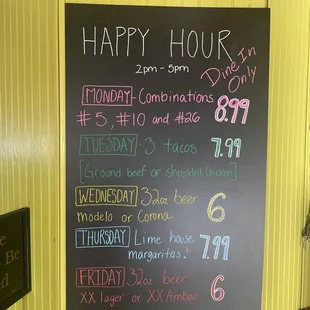 HAPPY HOUR
2pm - 5pm
Dine In
Only
MONDAY - Combinations
#5, #10 and #26 8.99
TUESDAY - 3 tacos 7.99
[Ground beef or shredded chicken]
WEDNESDAY 32oz beer
modelo or Corona 6
THURSDAY Lime house
margaritas! 7.99
FRIDAY 32oz beer
XX lager or XX Ambar 6
Be